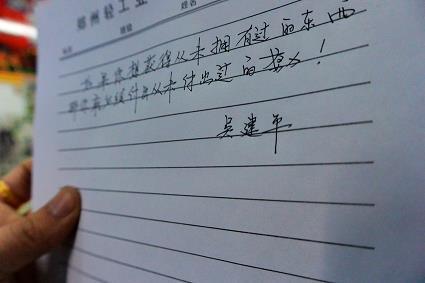 郑州轻工业
姓名
如果你想获得从未拥有过的东西
那么就必须付出从未付出过的努力！
吴建平